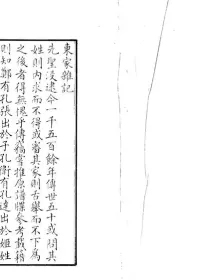 東家雜記
先聖没逮今一千五百餘年傳世五十或問其
姓則内求而不得或審其家則舌舉而不下爲
之後者得無愧乎傳竊嘗推原譜牒參考載籍
則知鄭有孔張出於子孔衛有孔達出於姬姓